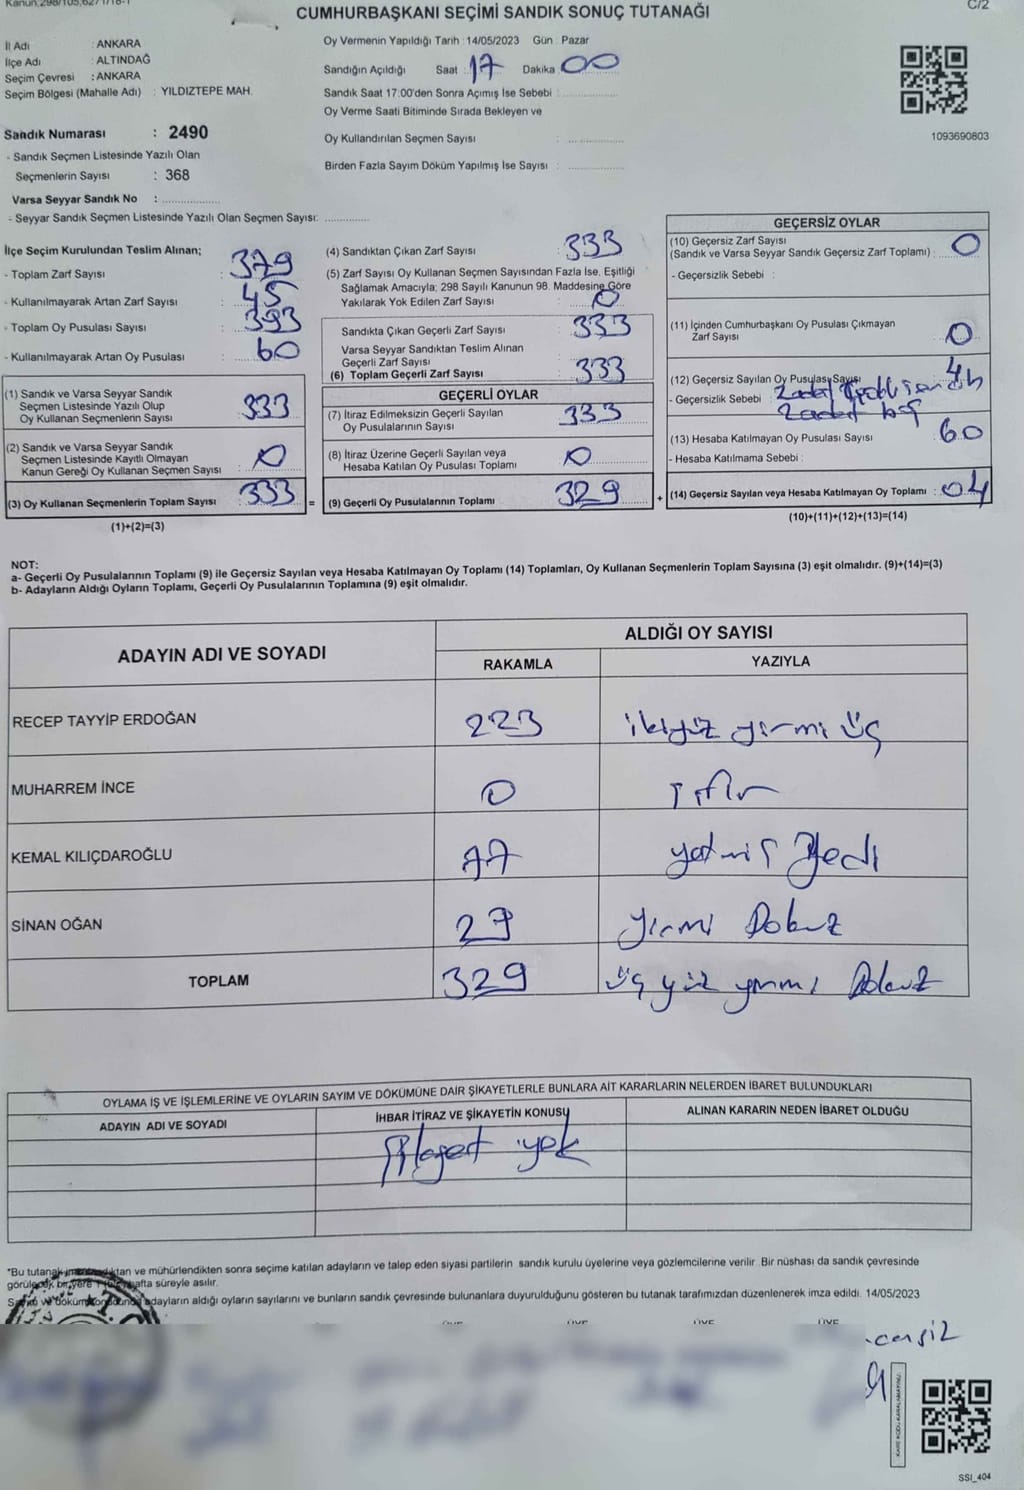 Kanun,298/105,6271/18-1
C/2
CUMHURBAŞKANI SEÇİMİ SANDIK SONUÇ TUTANAĞI
İl Adı : ANKARA
İlçe Adı : ALTINDAĞ
Seçim Çevresi : ANKARA
Seçim Bölgesi (Mahalle Adı) : YILDIZTEPE MAH.
Sandık Numarası : 2490
- Sandık Seçmen Listesinde Yazılı Olan
Seçmenlerin Sayısı : 368
Varsa Seyyar Sandık No :
- Seyyar Sandık Seçmen Listesinde Yazılı Olan Seçmen Sayısı:
Oy Vermenin Yapıldığı Tarih : 14/05/2023 Gün : Pazar
Sandığın Açıldığı Saat 17 Dakika 00
Sandık Saat 17:00'den Sonra Açımış İse Sebebi :
Oy Verme Saati Bitiminde Sırada Bekleyen ve
Oy Kullandırılan Seçmen Sayısı :
Birden Fazla Sayım Döküm Yapılmış İse Sayısı :
1093690803
İlçe Seçim Kurulundan Teslim Alınan;
- Toplam Zarf Sayısı : 379
- Kullanılmayarak Artan Zarf Sayısı : 45
- Toplam Oy Pusulası Sayısı : 393
- Kullanılmayarak Artan Oy Pusulası : 60
(1) Sandık ve Varsa Seyyar Sandık
Seçmen Listesinde Yazılı Olup
Oy Kullanan Seçmenlerin Sayısı : 333
(2) Sandık ve Varsa Seyyar Sandık
Seçmen Listesinde Kayıtlı Olmayan
Kanun Gereği Oy Kullanan Seçmen Sayısı : 0
(3) Oy Kullanan Seçmenlerin Toplam Sayısı : 333
(1)+(2)=(3)
=
(4) Sandıktan Çıkan Zarf Sayısı : 333
(5) Zarf Sayısı Oy Kullanan Seçmen Sayısından Fazla İse, Eşitliği
Sağlamak Amacıyla; 298 Sayılı Kanunun 98. Maddesine Göre
Yakılarak Yok Edilen Zarf Sayısı : 0
Sandıkta Çıkan Geçerli Zarf Sayısı : 333
Varsa Seyyar Sandıktan Teslim Alınan
Geçerli Zarf Sayısı :
(6) Toplam Geçerli Zarf Sayısı : 333
GEÇERLİ OYLAR
(7) İtiraz Edilmeksizin Geçerli Sayılan
Oy Pusulalarının Sayısı : 333
(8) İtiraz Üzerine Geçerli Sayılan veya
Hesaba Katılan Oy Pusulası Toplamı : 0
(9) Geçerli Oy Pusulalarının Toplamı : 329
+
GEÇERSİZ OYLAR
(10) Geçersiz Zarf Sayısı
(Sandık ve Varsa Seyyar Sandık Geçersiz Zarf Toplamı) : 0
- Geçersizlik Sebebi :
(11) İçinden Cumhurbaşkanı Oy Pusulası Çıkmayan
Zarf Sayısı : 0
(12) Geçersiz Sayılan Oy Pusulası Sayısı 4
- Geçersizlik Sebebi :
(13) Hesaba Katılmayan Oy Pusulası Sayısı : 60
- Hesaba Katılmama Sebebi :
(14) Geçersiz Sayılan veya Hesaba Katılmayan Oy Toplamı : 04
(10)+(11)+(12)+(13)=(14)
NOT:
a- Geçerli Oy Pusulalarının Toplamı (9) ile Geçersiz Sayılan veya Hesaba Katılmayan Oy Toplamı (14) Toplamları, Oy Kullanan Seçmenlerin Toplam Sayısına (3) eşit olmalıdır. (9)+(14)=(3)
b- Adayların Aldığı Oyların Toplamı, Geçerli Oy Pusulalarının Toplamına (9) eşit olmalıdır.
ADAYIN ADI VE SOYADI ALDIĞI OY SAYISI
RAKAMLA YAZIYLA
RECEP TAYYİP ERDOĞAN 223 ikiyüz yirmi üç
MUHARREM İNCE 0 sıfır
KEMAL KILIÇDAROĞLU 77 yetmiş yedi
SİNAN OĞAN 29 yirmi Dokuz
TOPLAM 329 üç yüz yirmi Dokuz
OYLAMA İŞ VE İŞLEMLERİNE VE OYLARIN SAYIM VE DÖKÜMÜNE DAİR ŞİKAYETLERLE BUNLARA AİT KARARLARIN NELERDEN İBARET BULUNDUKLARI
ADAYIN ADI VE SOYADI İHBAR İTİRAZ VE ŞİKAYETİN KONUSU ALINAN KARARIN NEDEN İBARET OLDUĞU
yok
*Bu tutanak imzalandıktan ve mühürlendikten sonra seçime katılan adayların ve talep eden siyasi partilerin sandık kurulu üyelerine veya gözlemcilerine verilir. Bir nüshası da sandık çevresinde
görülecek bir yere 1 hafta süreyle asılır.
Sayım ve döküm sonucunda adayların aldığı oyların sayılarını ve bunların sandık çevresinde bulunanlara duyurulduğunu gösteren bu tutanak tarafımızdan düzenlenerek imza edildi. 14/05/2023
ÜYE ÜYE ÜYE ÜYE
SSI_404